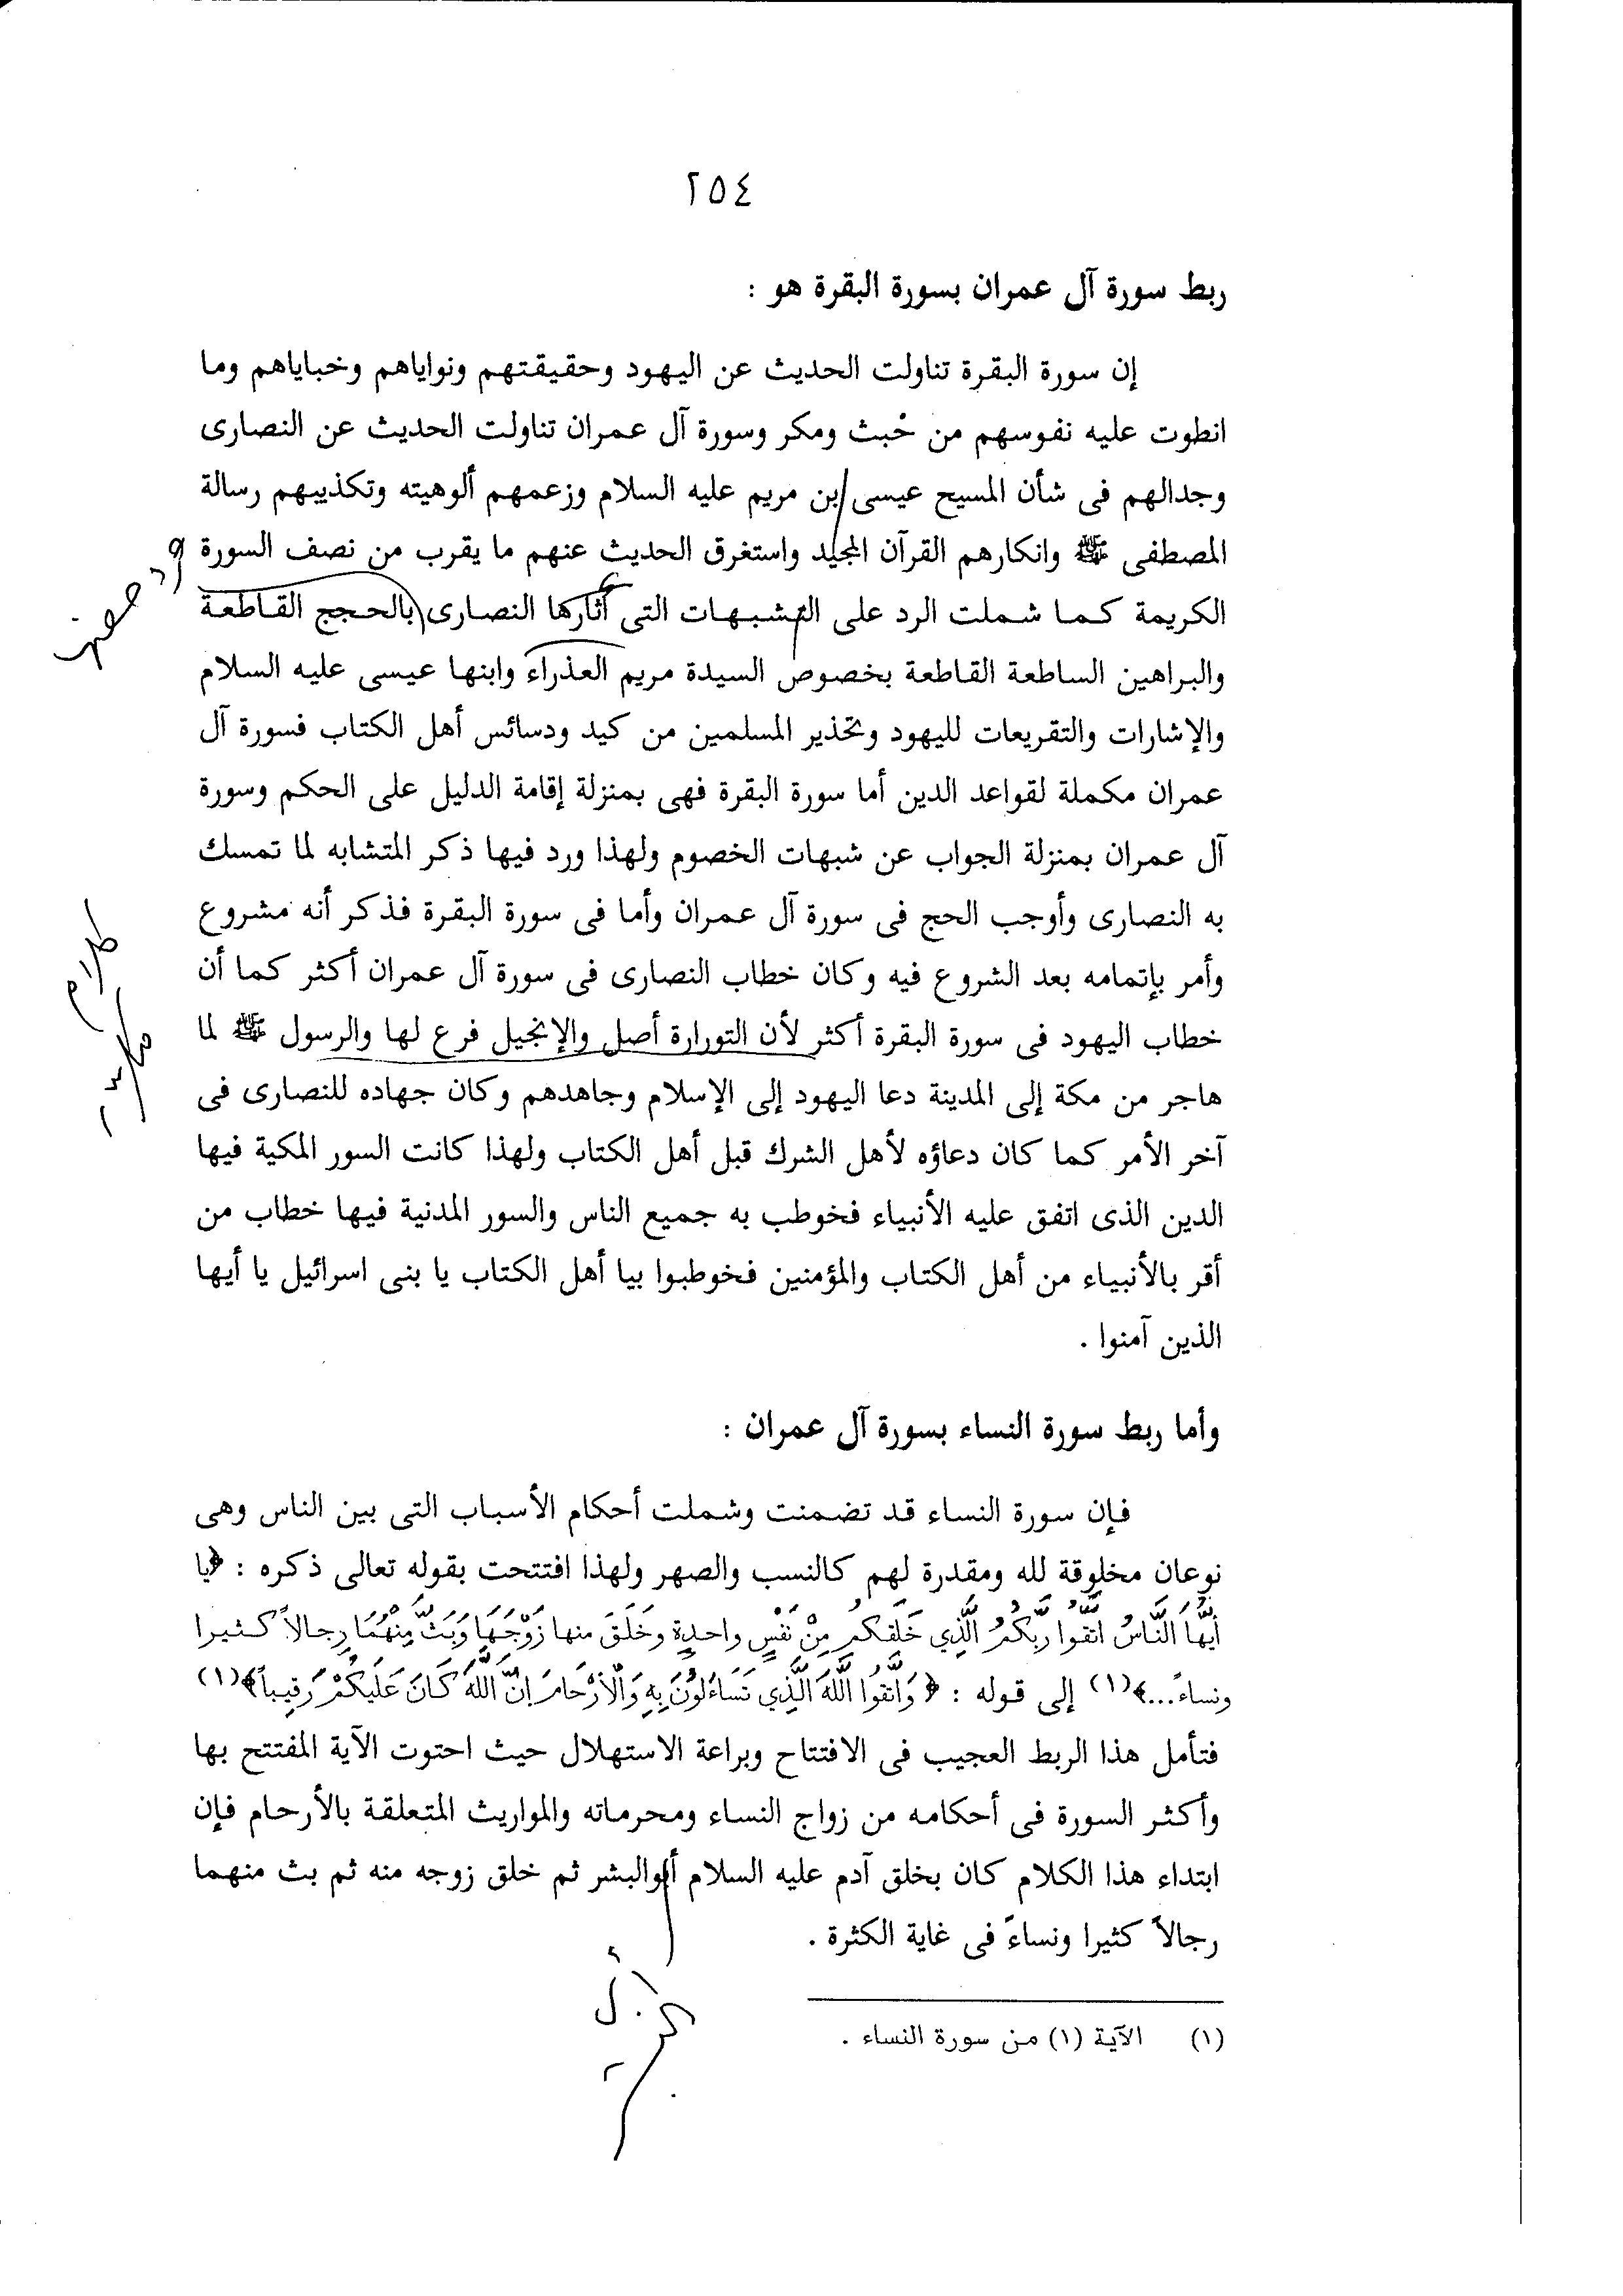 ٢٥٤
ربط سورة آل عمران بسورة البقرة هو :
إن سورة البقرة تناولت الحديث عن اليهود وحقيقتهم ونواياهم وخباياهم وما
انطوت عليه نفوسهم من خُبث ومكر وسورة آل عمران تناولت الحديث عن النصارى
وجدالهم فى شأن المسيح عيسى بن مريم عليه السلام وزعمهم ألوهيته وتكذيبهم رسالة
المصطفى ﷺ وانكارهم القرآن المجيد واستغرق الحديث عنهم ما يقرب من نصف السورة
الكريمة كما شملت الرد على الشبهات التى أثارها النصارى بالحجج القاطعة
والبراهين الساطعة القاطعة بخصوص السيدة مريم العذراء وابنها عيسى عليه السلام
والإشارات والتقريعات لليهود وتحذير المسلمين من كيد ودسائس أهل الكتاب فسورة آل
عمران مكملة لقواعد الدين أما سورة البقرة فهى بمنزلة إقامة الدليل على الحكم وسورة
آل عمران بمنزلة الجواب عن شبهات الخصوم ولهذا ورد فيها ذكر المتشابه لما تمسك
به النصارى وأوجب الحج فى سورة آل عمران وأما فى سورة البقرة فذكر أنه مشروع
وأمر بإتمامه بعد الشروع فيه وكان خطاب النصارى فى سورة آل عمران أكثر كما أن
خطاب اليهود فى سورة البقرة أكثر لأن التورارة أصل والإنجيل فرع لها والرسول ﷺ لما
هاجر من مكة إلى المدينة دعا اليهود إلى الإسلام وجاهدهم وكان جهاده للنصارى فى
آخر الأمر كما كان دعاؤه لأهل الشرك قبل أهل الكتاب ولهذا كانت السور المكية فيها
الدين الذى اتفق عليه الأنبياء فخوطب به جميع الناس والسور المدنية فيها خطاب من
أقر بالأنبياء من أهل الكتاب والمؤمنين فخوطبوا بيا أهل الكتاب يا بنى اسرائيل يا أيها
الذين آمنوا .
وأما ربط سورة النساء بسورة آل عمران :
فإن سورة النساء قد تضمنت وشملت أحكام الأسباب التى بين الناس وهى
نوعان مخلوقة لله ومقدرة لهم كالنسب والصهر ولهذا افتتحت بقوله تعالى ذكره : ﴿يا
أيُّهَا النَّاسُ اتَّقُوا رَبَّكُمُ الَّذِي خَلَقَكُم مِنْ نَفْسٍ واحدِةٍ وخَلَقَ منها زَوْجَهَا وَبَثَّ مِنْهُمَا رِجالاً كثيرا
ونساءً...﴾(١) إلى قوله : ﴿ وَاتَّقُوا اللَّهَ الَّذِي تَسَاءَلُونَ بِهِ وَالْأَرْحَامَ إنَّ اللَّهَ كَانَ عَلَيكُمْ رَقِيباً﴾(١)
فتأمل هذا الربط العجيب فى الافتتاح وبراعة الاستهلال حيث احتوت الآية المفتتح بها
وأكثر السورة فى أحكامه من زواج النساء ومحرماته والمواريث المتعلقة بالأرحام فإن
ابتداء هذا الكلام كان بخلق آدم عليه السلام أبوالبشر ثم خلق زوجه منه ثم بث منهما
رجالاً كثيرا ونساءً فى غاية الكثرة .
(١) الآية (١) من سورة النساء .
كلام